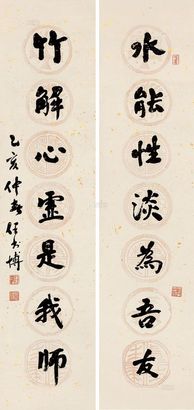 水能性淡為吾友
竹解心靈是我師
乙亥仲春任书博